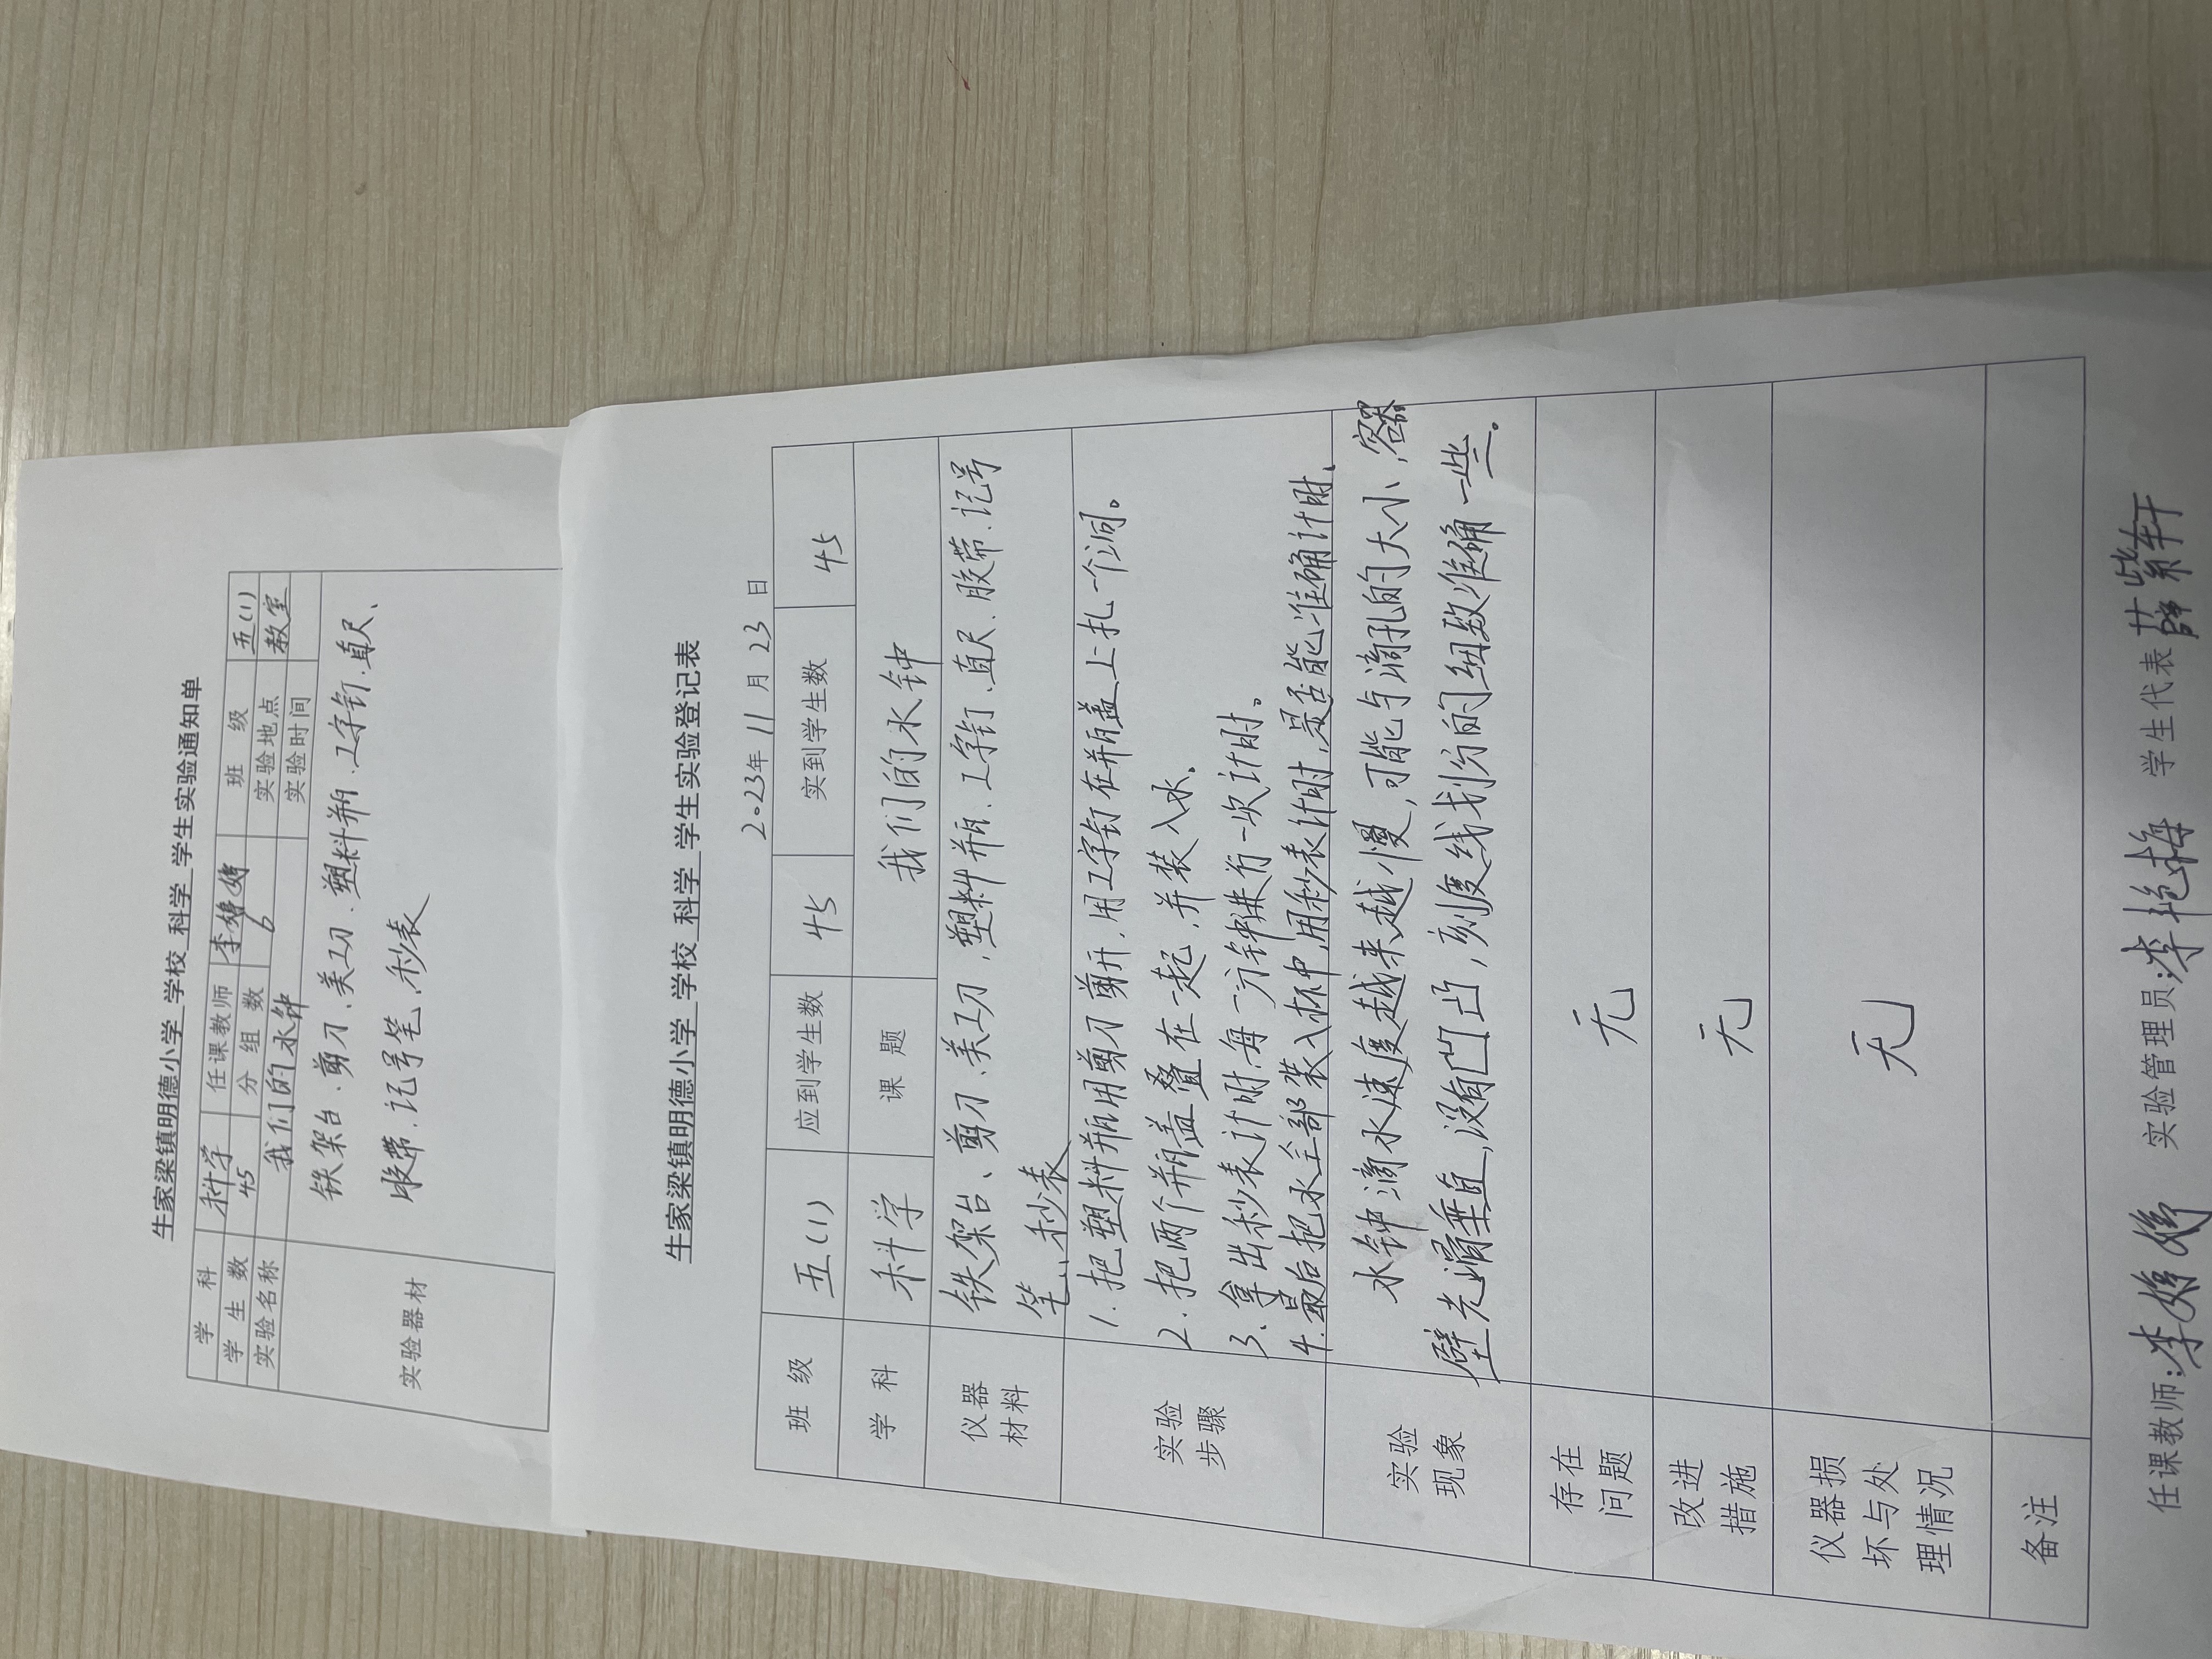 牛家梁镇明德小学 学校 科学 学生实验通知单
学 科 科学 任课教师 李 班 级 五(1)
学 生 数 45 分 组 数 6 实验地点 教室
实验名称 我们的水钟 实验时间
实验器材
铁架台、剪刀、美工刀、塑料瓶、工字钉、直尺、
胶带、记号笔、秒表
牛家梁镇明德小学 学校 科学 学生实验登记表
2023年 11 月 23 日
班 级 五(1) 应到学生数 45 实到学生数 45
学 科 科学 课 题 我们的水钟
仪器
材料
铁架台、剪刀、美工刀、塑料瓶、工字钉、直尺、胶带、记号
笔、秒表
实验
步骤
1. 把塑料瓶用剪刀剪开,用工字钉在瓶盖上扎一个洞。
2. 把两个瓶盖叠在一起,并装入水。
3、拿出秒表计时,每一分钟进行一次计时。
4.最后把水全部装入杯中,用秒表计时,是否能准确计时、
实验
现象
水钟滴水速度越来越慢,可能与滴孔的大小,容器
壁光滑垂直,没有凹凸,刻度线划分的细致准确一些。
存在
问题
无
改进
措施
无
仪器损
坏与处
理情况
无
备注
任课教师:李 实验管理员:李艳梅 学生代表 薛紫轩